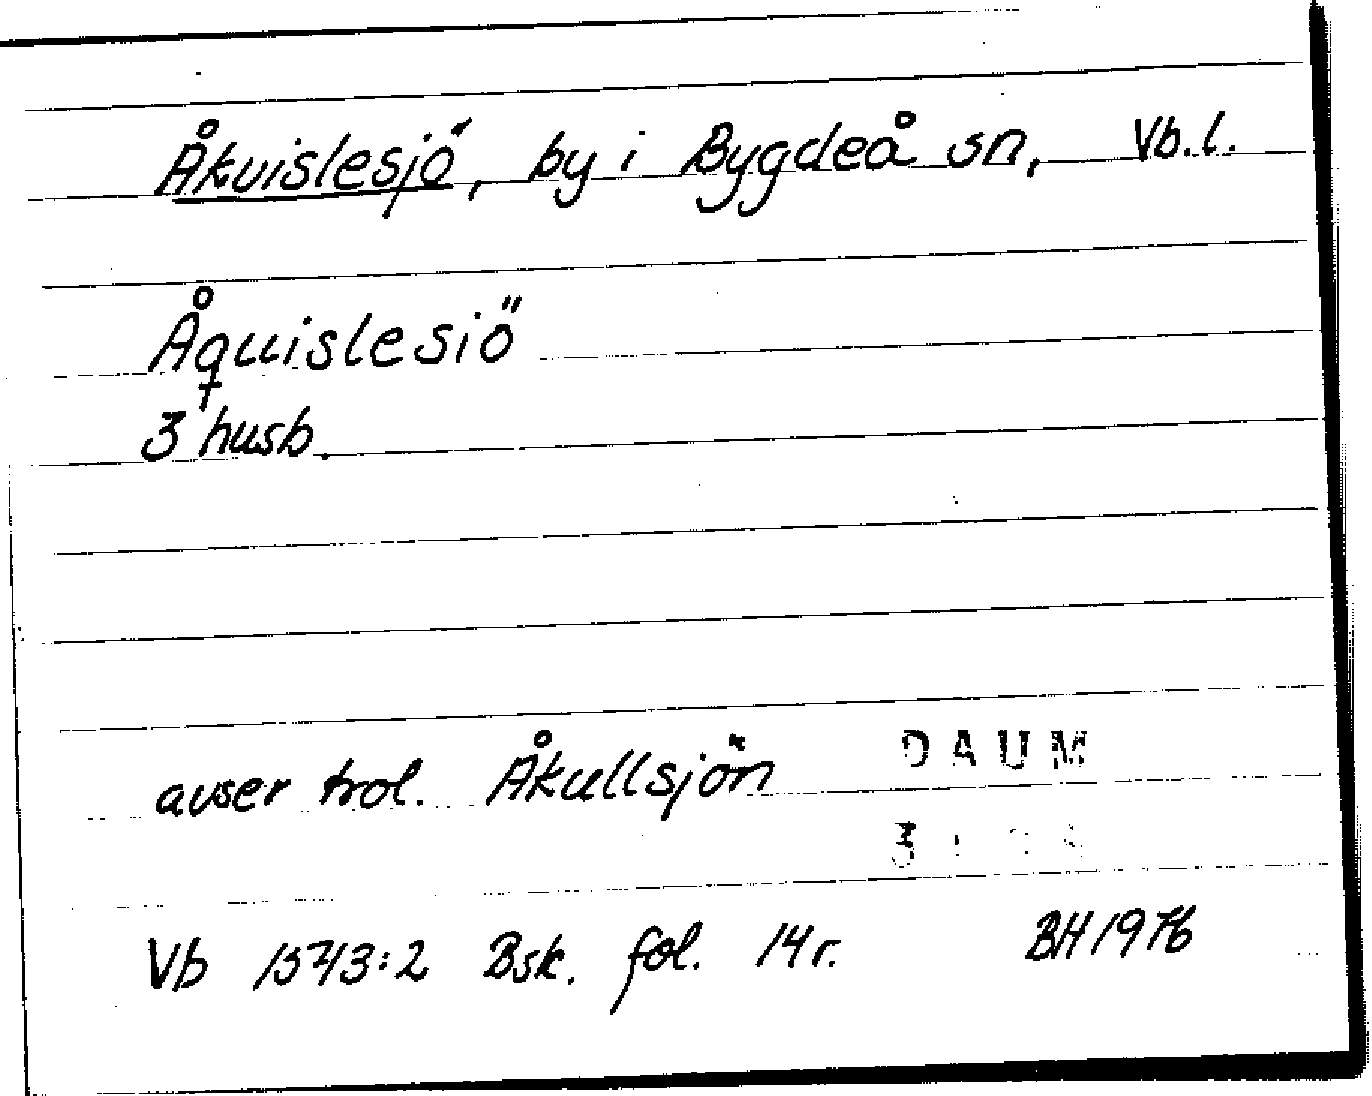 Åkvislesjö, by i Bygdeå sn, Vb.l.
Åquislesiö
3 husb.
avser trol. Åkullsjön
DAUM
Vb 1573:2 Bsk. fol. 14 r. BH 1976